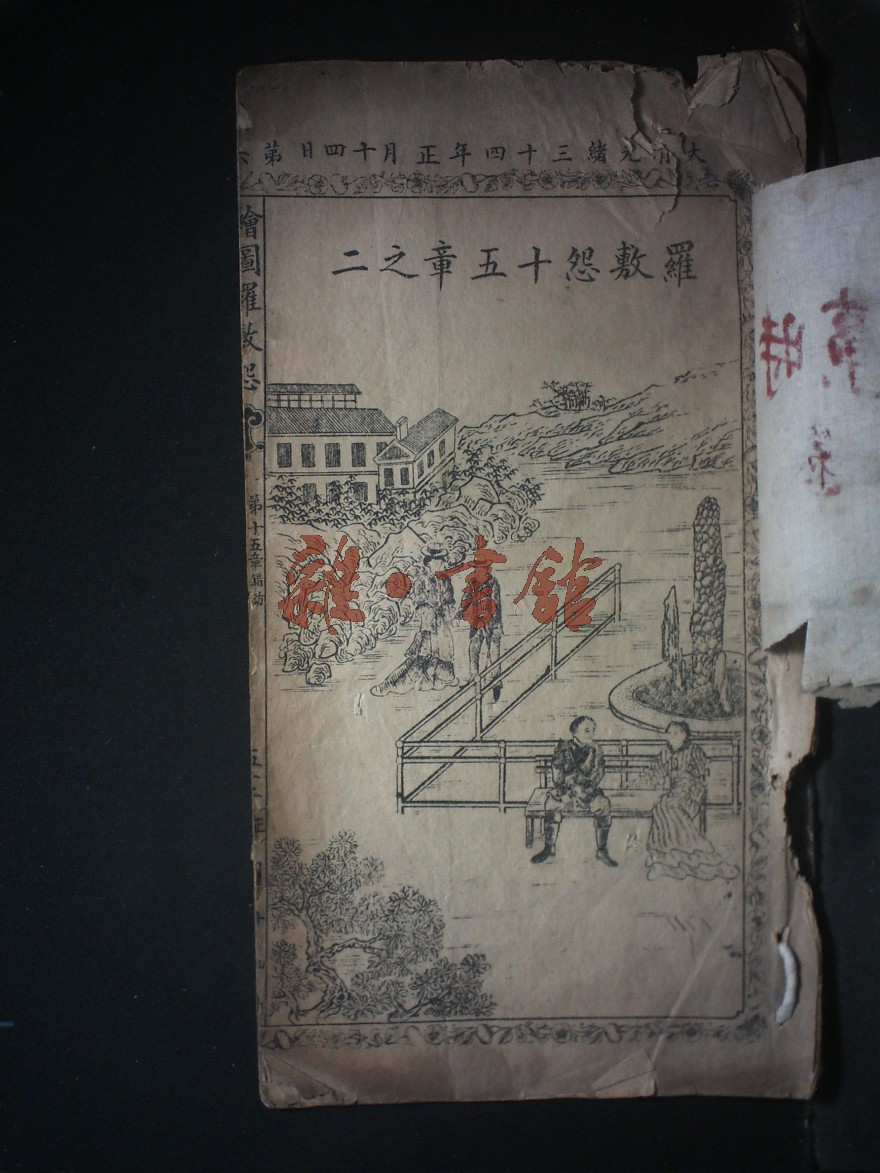 大清光緒三十四年正月十四日第六
羅敷怨十五章之二
繪圖羅敷怨
第十五章
雜·書館
時事